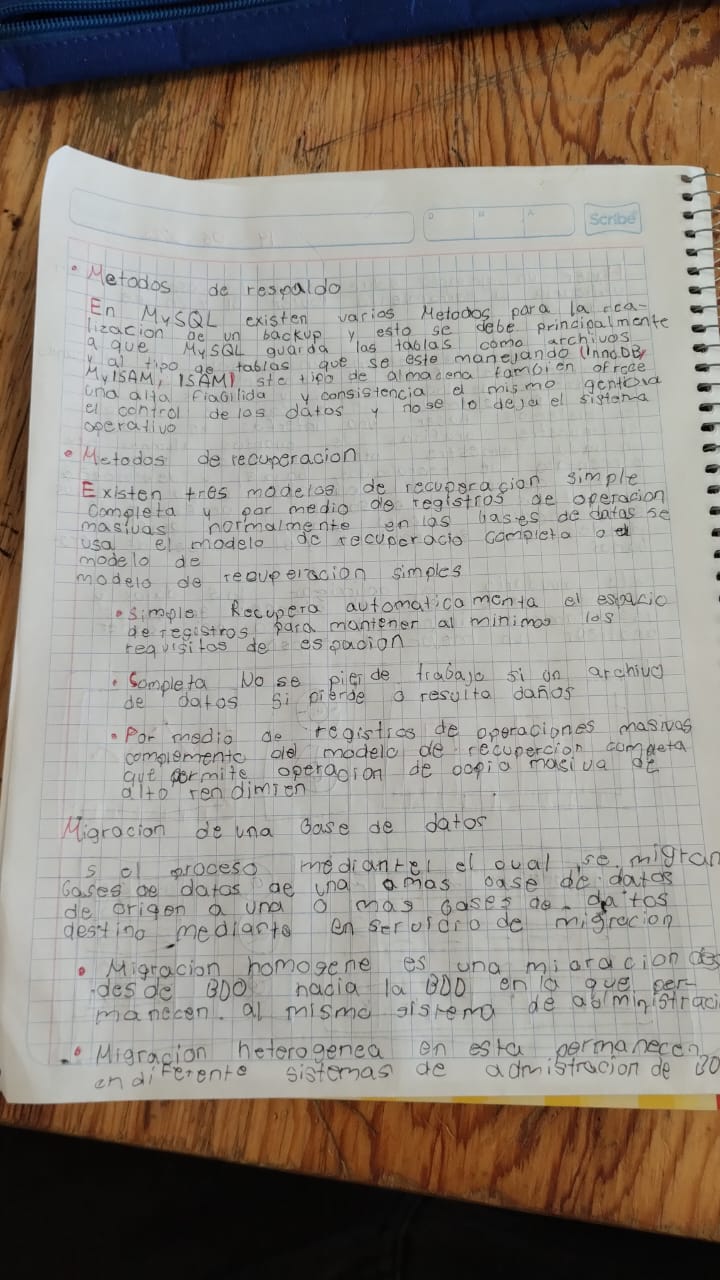 D M A
Scribe
• Metodos de respaldo
En MySQL existen varios Metodos para la rea-
lizacion de un backup y esto se debe principalmente
a que MySQL guarda las tablas como archivos
y al tipo de tablas que se este manejando (InnoDB,
MyISAM, ISAM) ste tipo de almacena tambien ofrece
una alta fiabilida y consistencia el mismo gentiona
el control de los datos y no se lo deja el sistema
operativo
• Metodos de recuperacion
Existen tres modelos de recuperacion simple
Completa y por medio de registros de operacion
masivas normalmente en las bases de datas se
usa el modelo de recuperacio completa o el
modelo de
modelo de recuperacion simples
• Simple Recupera automaticamenta el espacio
de registros para mantener al minimos los
requisitos de espadion
• Completa No se pierde trabajo si un archivo
de datos si pierde o resulta daños
• Por medio de registros de operaciones masivas
complemento del modelo de recupercion competa
que permite operacion de copia masiva de
alto rendimien
Migracion de una Base de datos
s el proceso mediantel el qual se migran
bases de datos de una o mas base de datos
de origen a una o mas bases de datos
destino mediante en servidro de migracion
• Migracion homogene es una migracion des
desde BDO hacia la BDD en la que per-
manecen al mismo sistema de administraci
• Migracion heterogenea en esta permanecen
en diferente sistemas de admistracion de BD